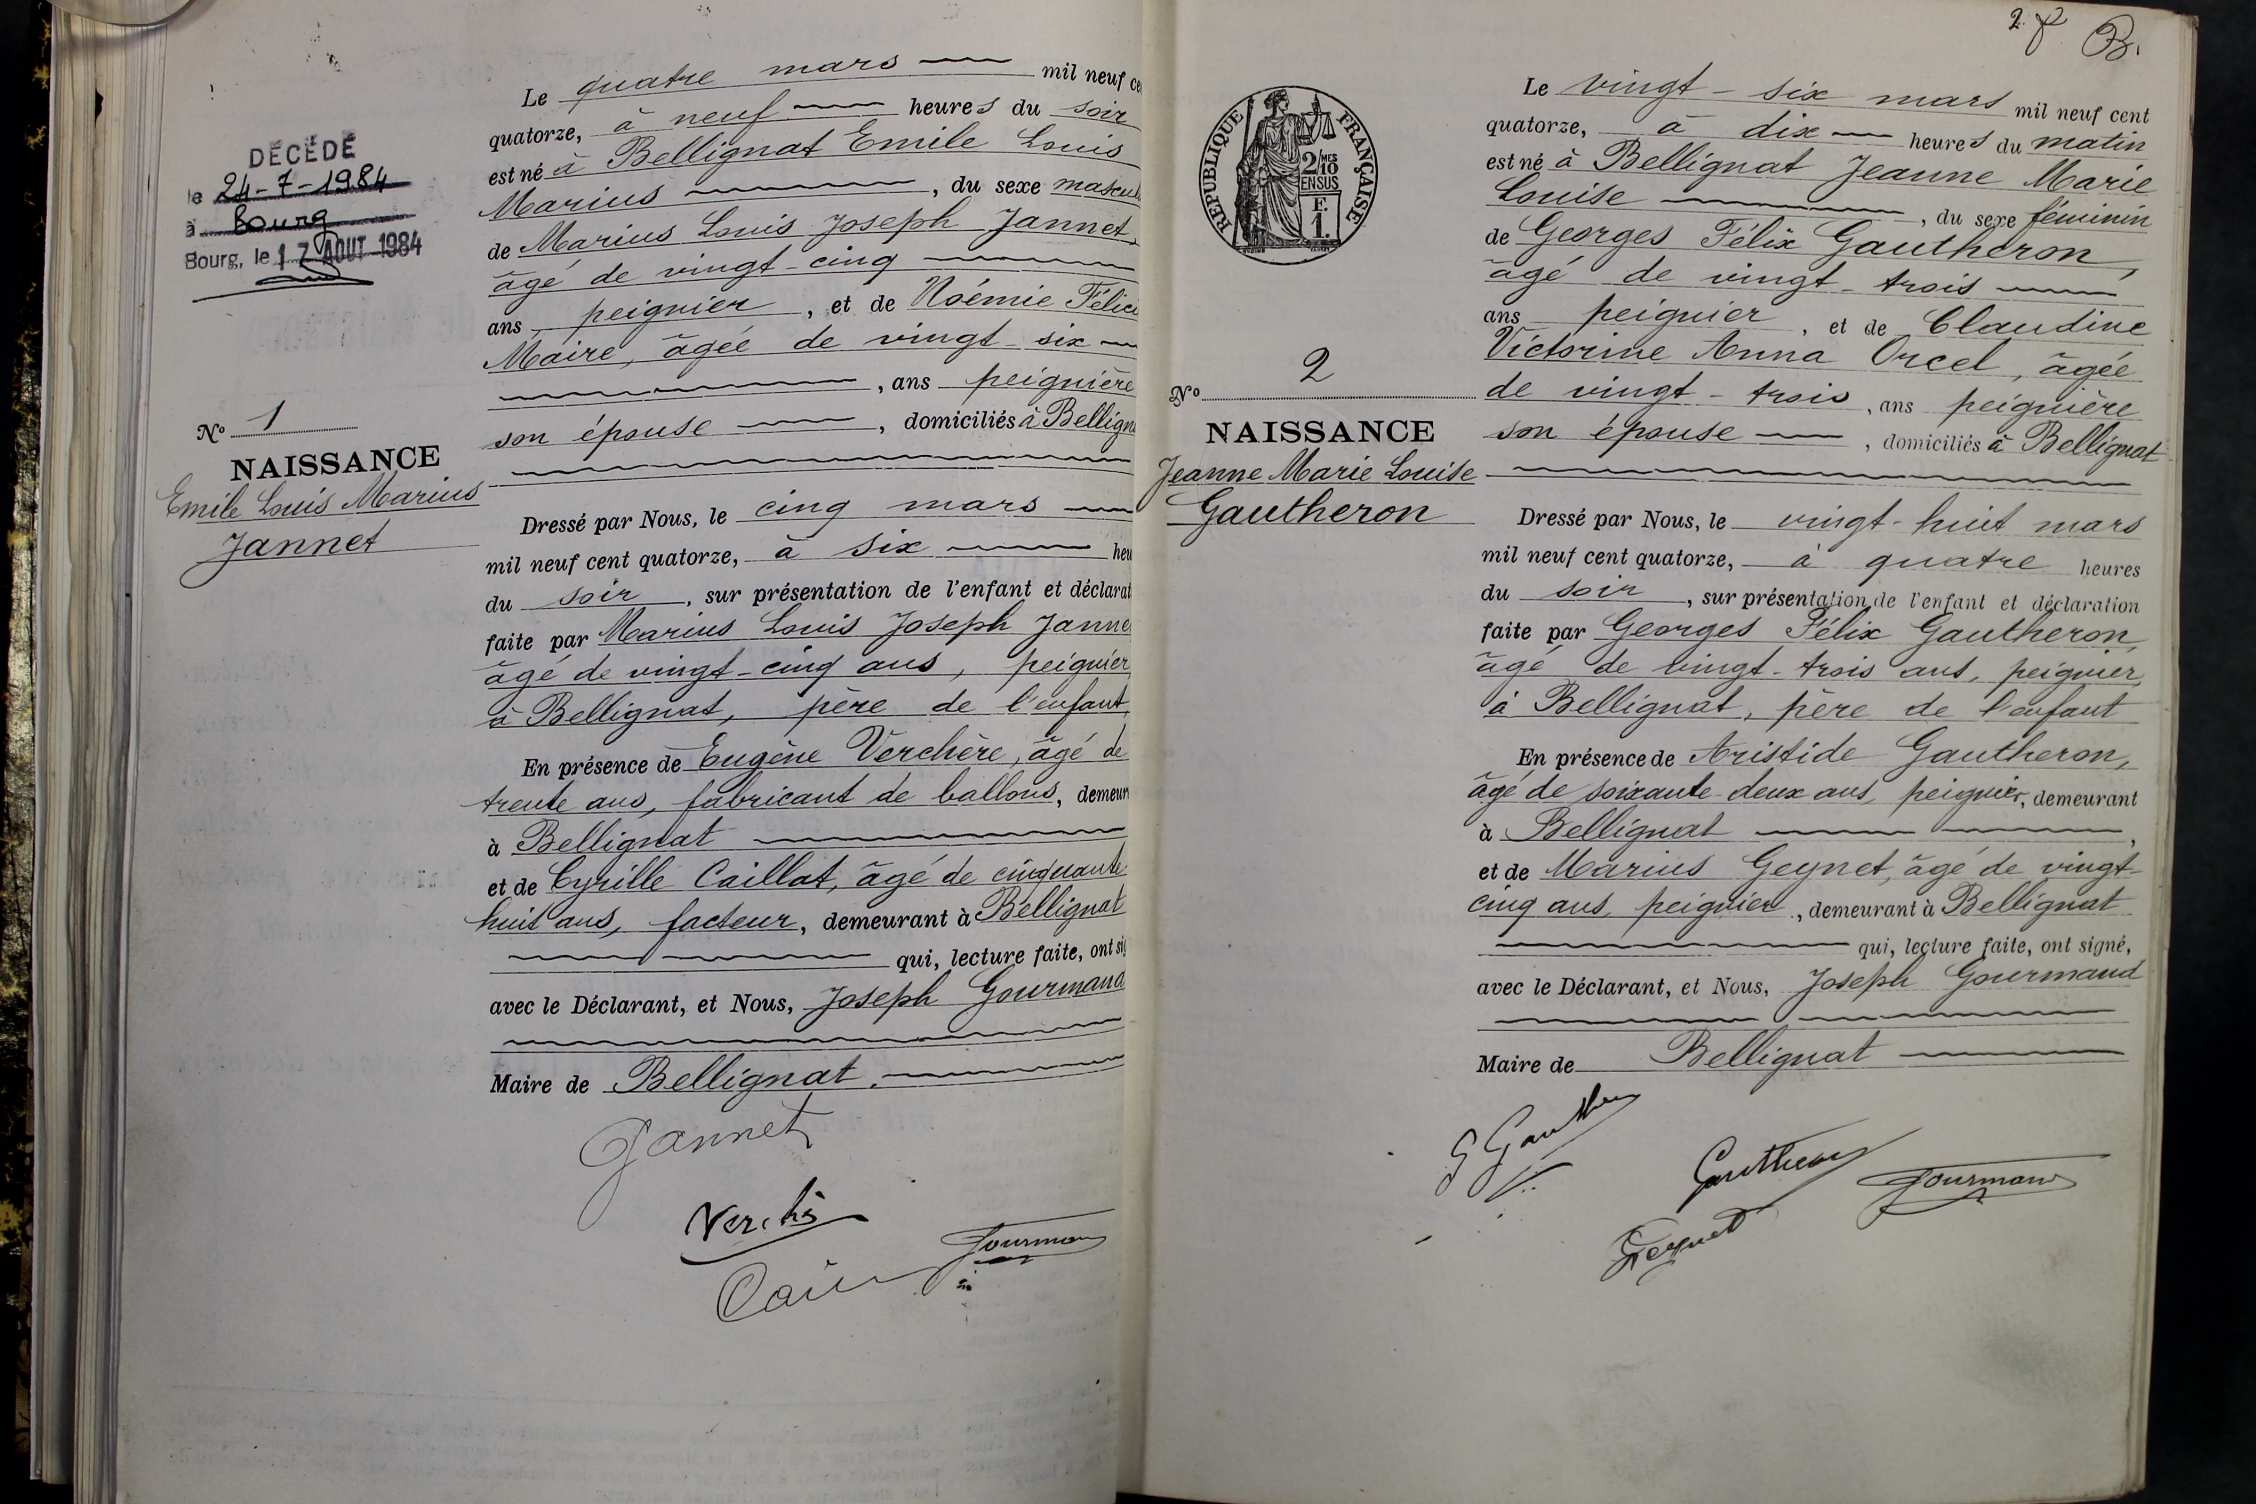 DÉCÉDÉ
le 24-7-1984
à Bourg
Bourg, le 17 AOUT 1984
No 1
NAISSANCE
Emile Louis Marius
Jannet
Le quatre mars mil neuf ce
quatorze, à neuf heures du soir
est né à Bellignat Emile Louis
Marius , du sexe mascul
de Marius Louis Joseph Jannet,
âgé de vingt-cinq
ans peignier , et de Noémie Félici
Maire, âgée de vingt-six
, ans peignière
son épouse , domiciliés à Bellign
Dressé par Nous, le cinq mars
mil neuf cent quatorze, à six heu
du soir , sur présentation de l'enfant et déclarat
faite par Marius Louis Joseph Janne
âgé de vingt-cinq ans, peignier
à Bellignat, père de l'enfant
En présence de Eugène Verchère, âgé de
trente ans, fabricant de ballons, demeur
à Bellignat
et de Cyrille Caillat, âgé de cinquante
huit ans, facteur, demeurant à Bellignat
qui, lecture faite, ont si
avec le Déclarant, et Nous, Joseph Gourmand
Maire de Bellignat.
Jannet
Gourman
2
B.
RÉPUBLIQUE FRANÇAISE
2/10 MES
EN SUS
F.
1.
No 2
NAISSANCE
Jeanne Marie Louise
Gautheron
Le vingt-six mars mil neuf cent
quatorze, à dix heures du matin
est né à Bellignat Jeanne Marie
Louise , du sexe féminin
de Georges Félix Gautheron,
âgé de vingt-trois
ans peignier , et de Claudine
Victorine Anna Orcel, âgée
de vingt-trois , ans peignière
son épouse , domiciliés à Bellignat
Dressé par Nous, le vingt-huit mars
mil neuf cent quatorze, à quatre heures
du soir , sur présentation de l'enfant et déclaration
faite par Georges Félix Gautheron,
âgé de vingt-trois ans, peignier,
à Bellignat, père de l'enfant
En présence de Aristide Gautheron,
âgé de soixante-deux ans, peignier, demeurant
à Bellignat ,
et de Marius Geynet, âgé de vingt-
cinq ans, peignier , demeurant à Bellignat
qui, lecture faite, ont signé,
avec le Déclarant, et Nous, Joseph Gourmand
Maire de Bellignat
Gautheron
Gourman
Geynet